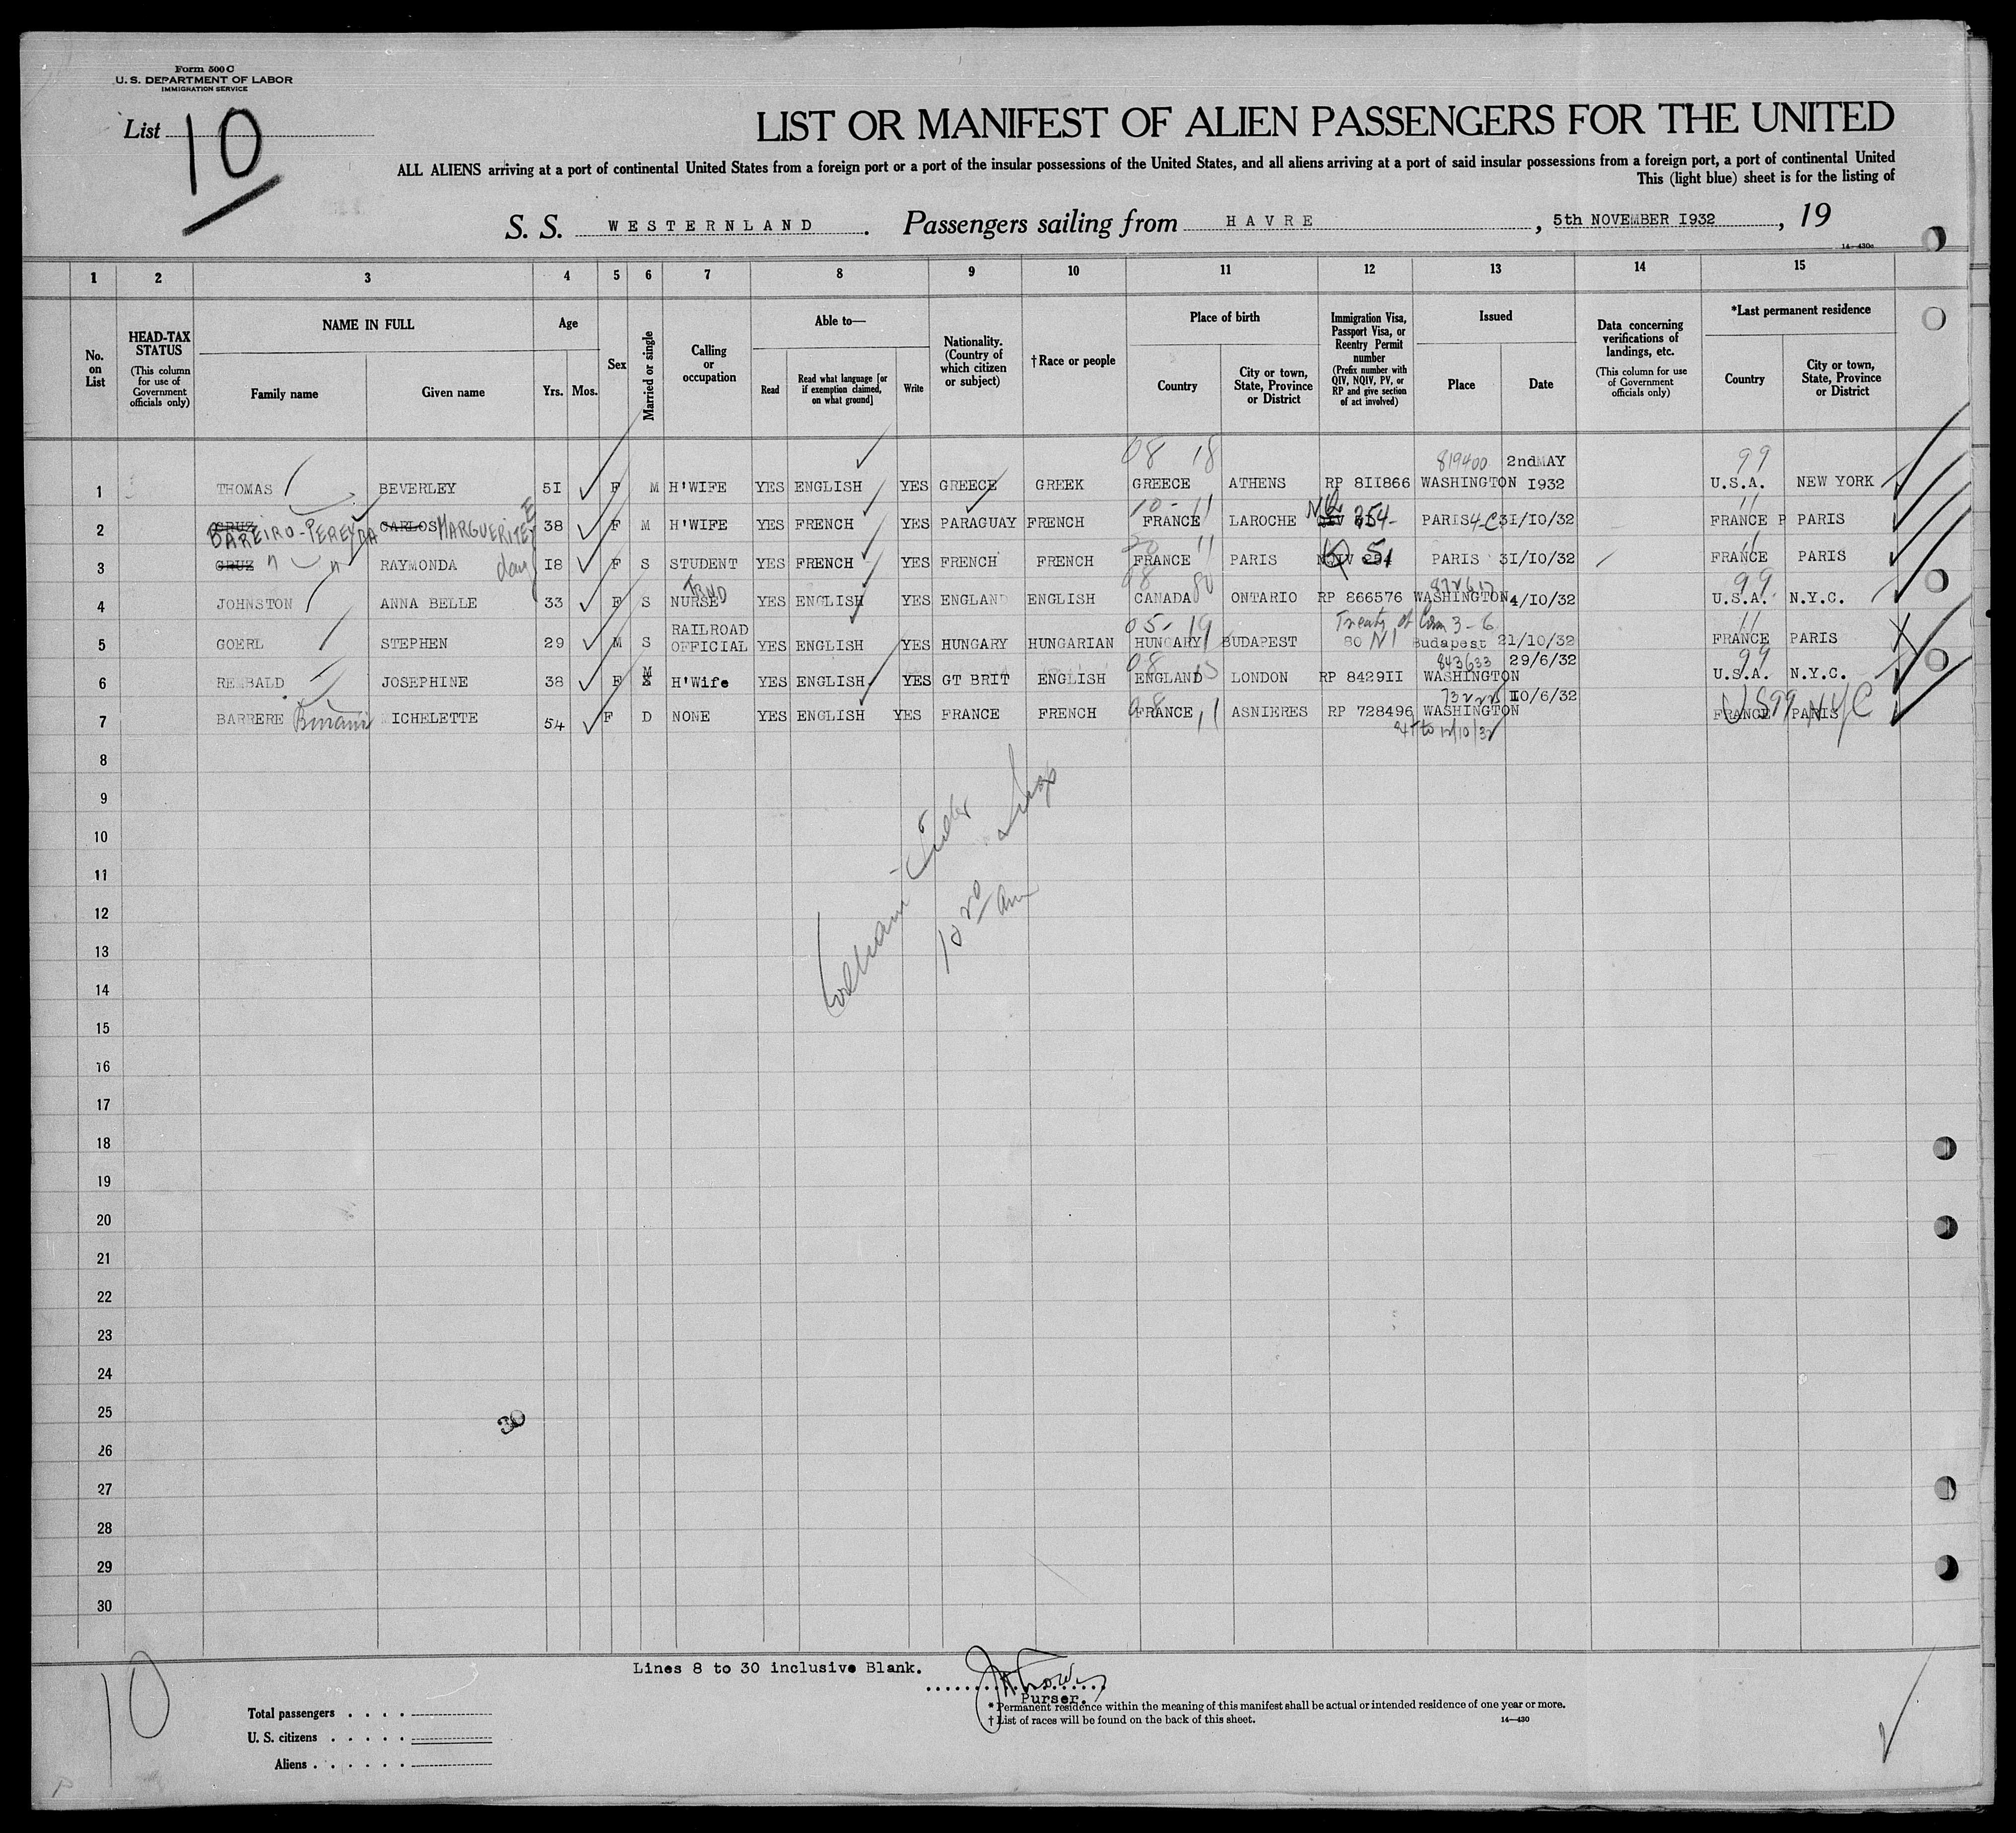 Form 500 C
U. S. DEPARTMENT OF LABOR
IMMIGRATION SERVICE
List 10
LIST OR MANIFEST OF ALIEN PASSENGERS FOR THE UNITED
ALL ALIENS arriving at a port of continental United States from a foreign port or a port of the insular possessions of the United States, and all aliens arriving at a port of said insular possessions from a foreign port, a port of continental United
This (light blue) sheet is for the listing of
S. S. WESTERNLAND . Passengers sailing from HAVRE , 5th NOVEMBER I932 , 19
14—430a
1 2 3 4 5 6 7 8 9 10 11 12 13 14 15
No. on List
HEAD-TAX STATUS
(This column for use of Government officials only)
NAME IN FULL
Family name Given name
Age
Yrs. Mos.
Sex
Married or single
Calling or occupation
Able to—
Read Read what language [or if exemption claimed, on what ground] Write
Nationality. (Country of which citizen or subject)
†Race or people
Place of birth
Country City or town, State, Province or District
Immigration Visa, Passport Visa, or Reentry Permit number
(Prefix number with QIV, NQIV, PV, or RP and give section of act involved)
Issued
Place Date
Data concerning verifications of landings, etc.
(This column for use of Government officials only)
*Last permanent residence
Country City or town, State, Province or District
08 18 819400 2nd MAY 99
1 THOMAS BEVERLEY 5I F M H'WIFE YES ENGLISH YES GREECE GREEK GREECE ATHENS RP 8II866 WASHINGTON I932 U.S.A. NEW YORK
10 - 11 11
2 CRUZ BAREIRO-PEREYDA CARLOS MARGUERITE 38 F M H'WIFE YES FRENCH YES PARAGUAY FRENCH FRANCE LAROCHE 254 PARIS 4-C 3I/I0/32 FRANCE P PARIS
11 11
3 CRUZ " " RAYMONDA I8 F S STUDENT YES FRENCH YES FRENCH FRENCH FRANCE PARIS NQIV 251 51 PARIS 3I/I0/32 FRANCE PARIS
TRND 99
4 JOHNSTON ANNA BELLE 33 F S NURSE YES ENGLISH YES ENGLAND ENGLISH CANADA ONTARIO RP 866576 WASHINGTON 4/I0/32 U.S.A. N.Y.C.
05 - 19 Treaty of Com 3-6 11
5 GOERL STEPHEN 29 M S RAILROAD OFFICIAL YES ENGLISH YES HUNGARY HUNGARIAN HUNGARY BUDAPEST 80 NI Budapest 21/10/32 FRANCE PARIS
843633 29/6/32 99
6 REMBALD JOSEPHINE 38 F M H'Wife YES ENGLISH YES GT BRIT ENGLISH ENGLAND LONDON RP 8429II WASHINGTON U.S.A. N.Y.C.
I0/6/32 US 99 NYC
7 BARRERE MICHELETTE 54 F D NONE YES ENGLISH YES FRANCE FRENCH FRANCE ASNIERES RP 728496 WASHINGTON FRANCE PARIS
to 12/10/32
8
9
10
11
12
13
14
15
16
17
18
19
20
21
22
23
24
25
26
27
28
29
30
30
Lines 8 to 30 inclusive Blank.
Purser.
10
Total passengers
U. S. citizens
Aliens
* Permanent residence within the meaning of this manifest shall be actual or intended residence of one year or more.
† List of races will be found on the back of this sheet.
14—430